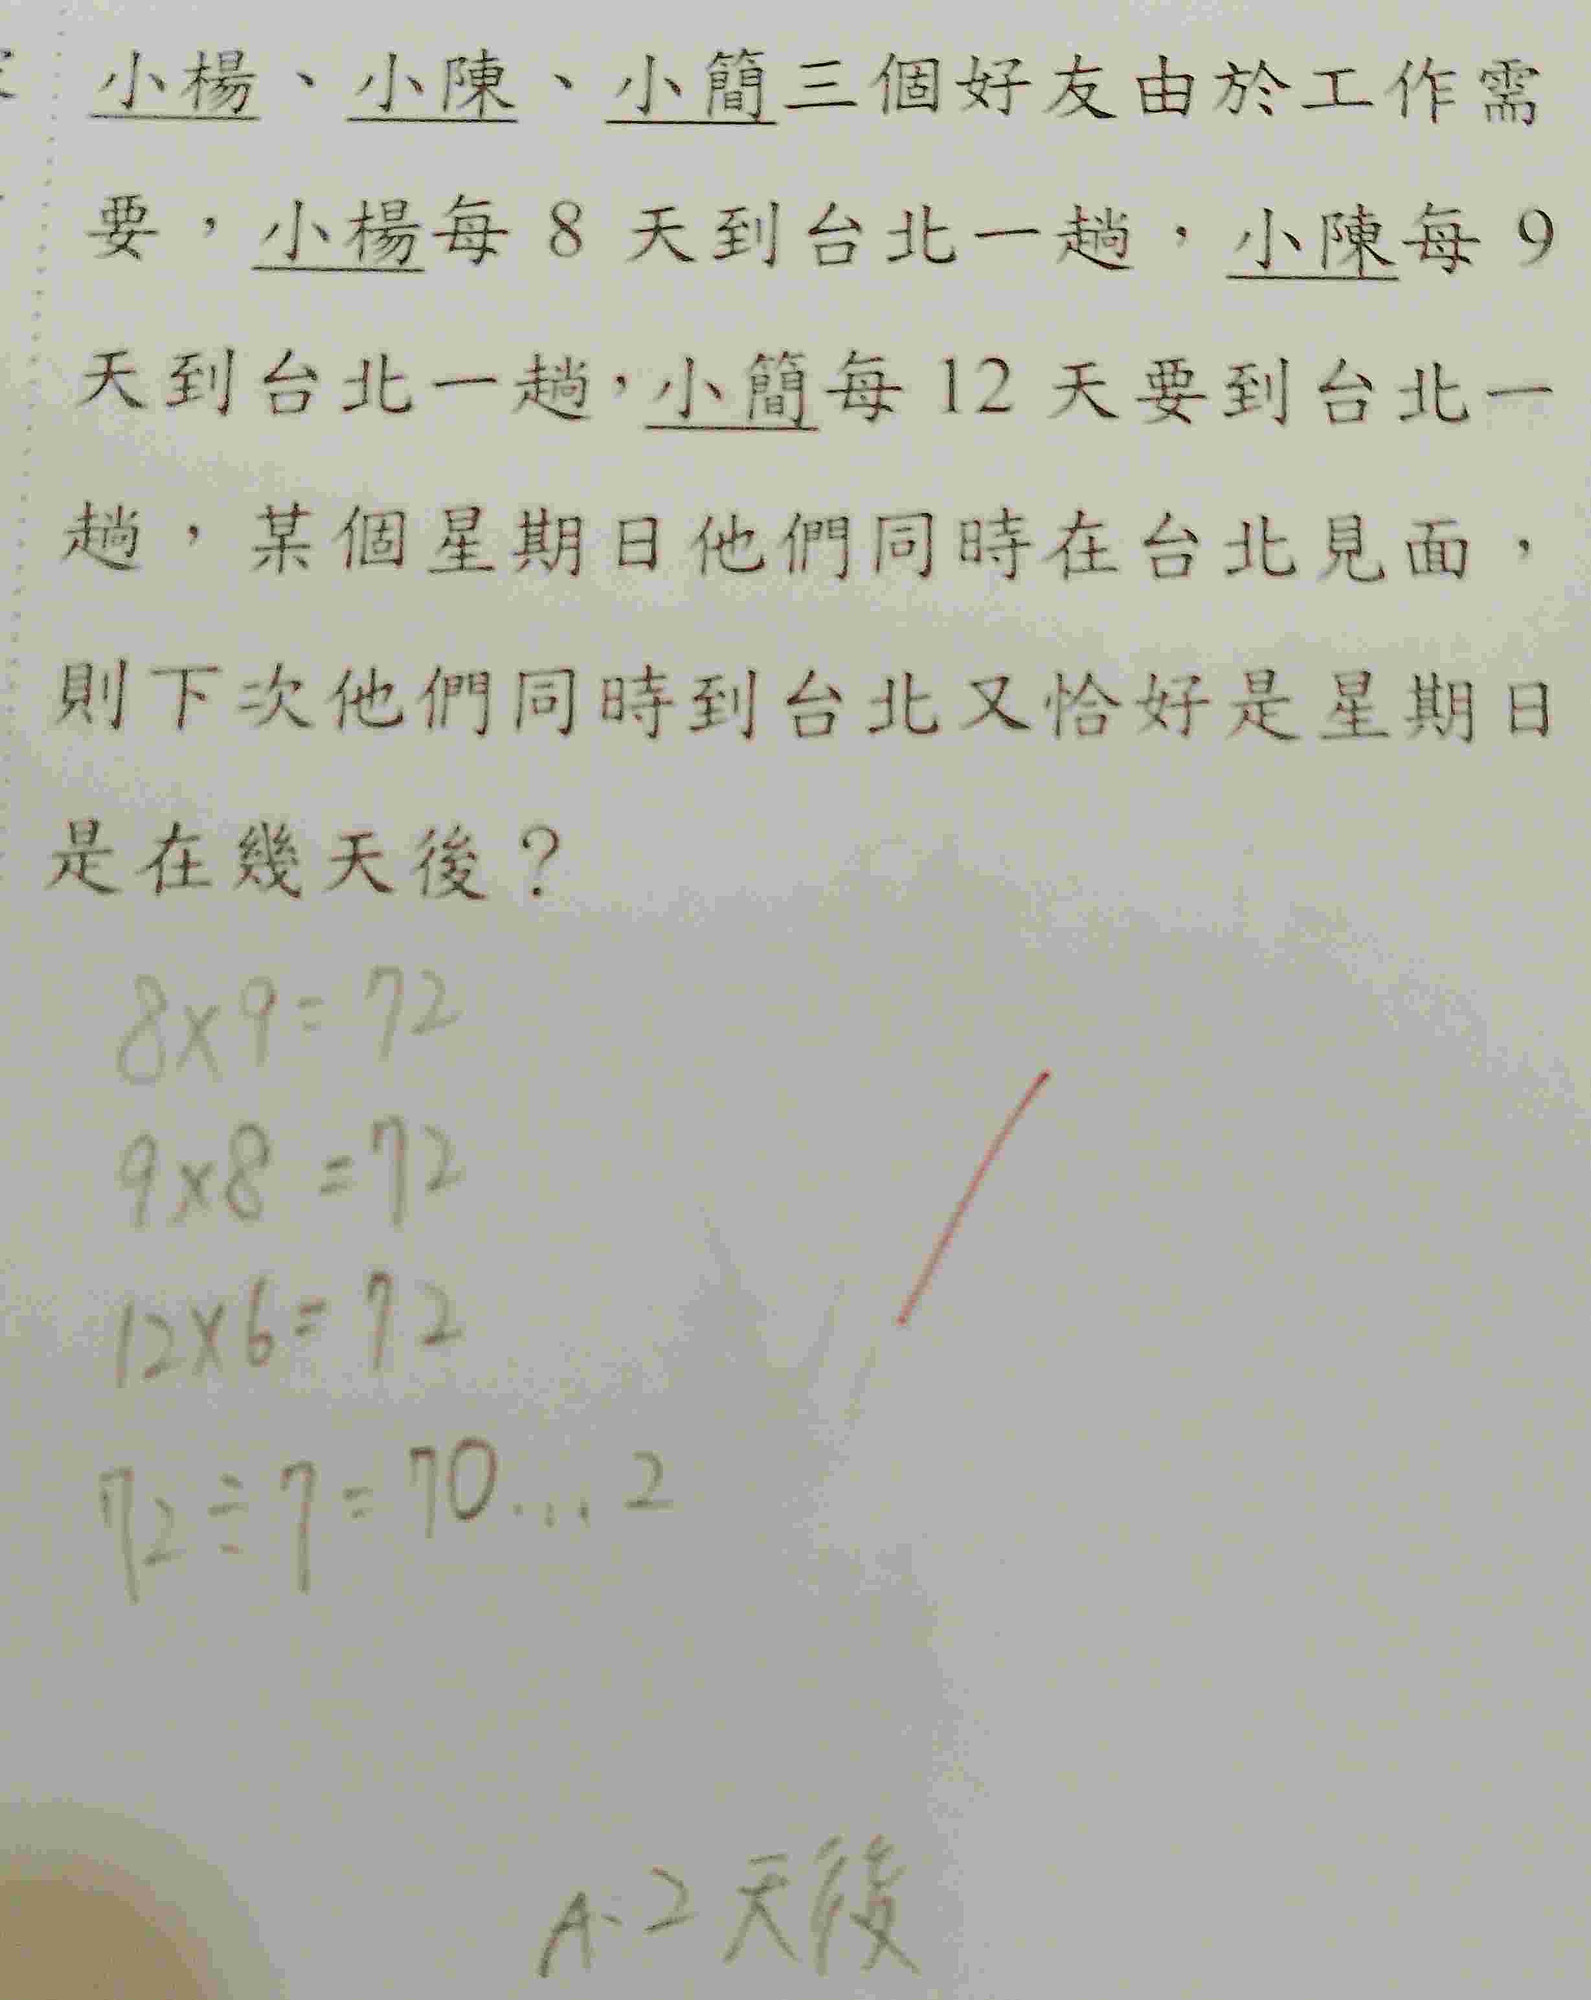 小楊、小陳、小簡三個好友由於工作需
要，小楊每 8 天到台北一趟，小陳每 9
天到台北一趟，小簡每 12 天要到台北一
趟，某個星期日他們同時在台北見面，
則下次他們同時到台北又恰好是星期日
是在幾天後？
8×9=72
9×8=72
12×6=72
72÷7=70...2
A、2天後